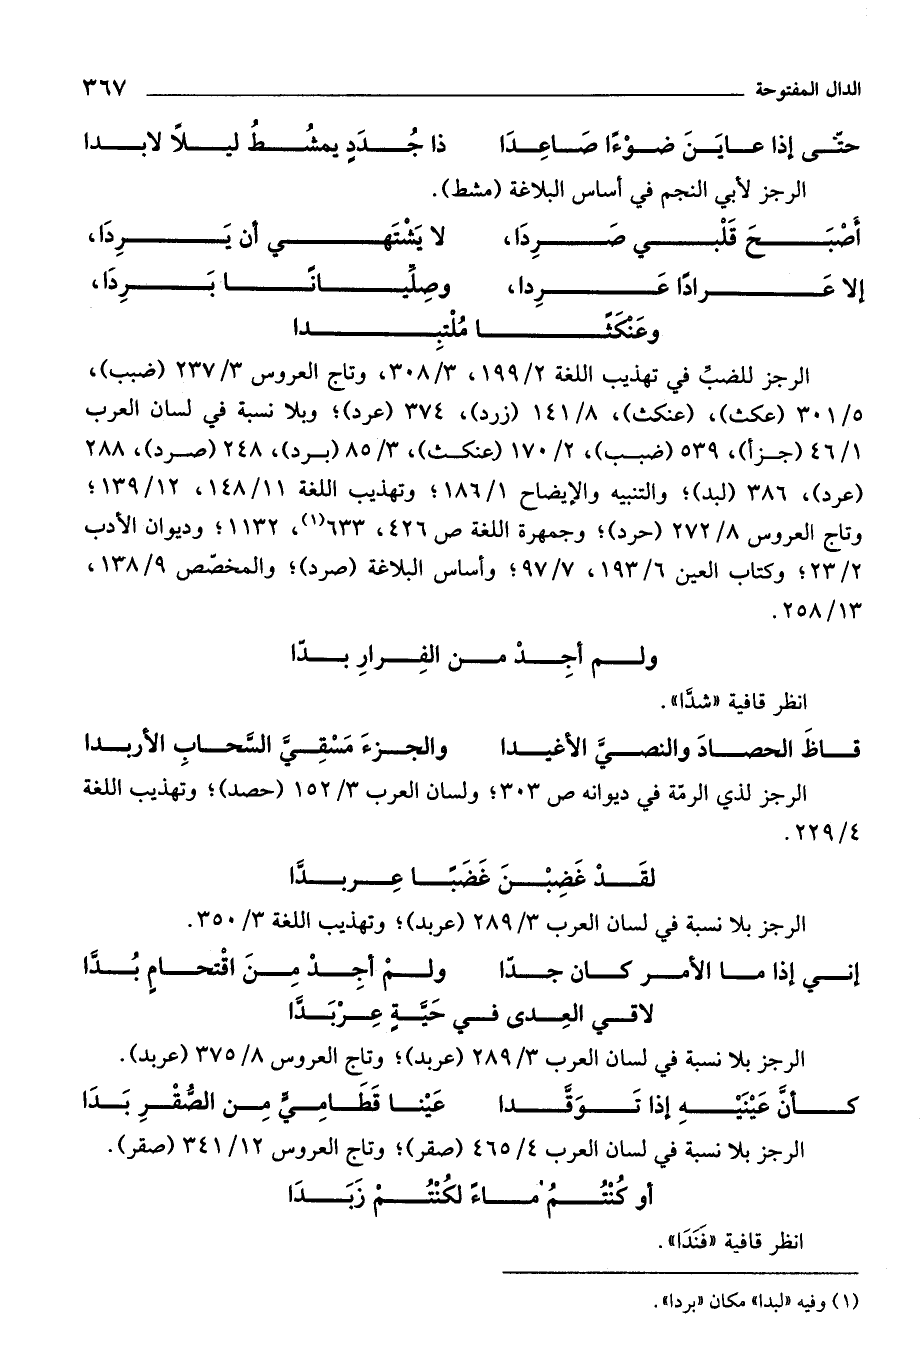 الدال المفتوحة ٣٦٧
حتّى إذا عايَنَ ضوْءًا صَاعِدَا ذا جُدَدٍ يمشُطُ ليلًا لابدا
الرجز لأبي النجم في أساس البلاغة (مشط).
أَصْبَحَ قَلْبي صَرِدَا، لا يَشْتَهي أن يَرِدَا،
إلا عَرادًا عَرِدا، وصِلِّيانًا بَرِدَا،
وعَنْكَثًا مُلْتَبِدا
الرجز للضبِّ في تهذيب اللغة ٢/١٩٩، ٣/٣٠٨، وتاج العروس ٣/٢٣٧ (ضبب)،
٥/٣٠١ (عكث)، (عنكث)، ٨/١٤١ (زرد)، ٣٧٤ (عرد)؛ وبلا نسبة في لسان العرب
١/٤٦ (جزأ)، ٥٣٩ (ضبب)، ٢/١٧٠ (عنكث)، ٣/٨٥ (برد)، ٢٤٨ (صرد)، ٢٨٨
(عرد)، ٣٨٦ (لبد)؛ والتنبيه والإيضاح ١/١٨٦؛ وتهذيب اللغة ١١/١٤٨، ١٢/١٣٩؛
وتاج العروس ٨/٢٧٢ (حرد)؛ وجمهرة اللغة ص ٤٢٦، ٦٣٣(١)، ١١٣٢؛ وديوان الأدب
٢/٢٣؛ وكتاب العين ٦/١٩٣، ٧/٩٧؛ وأساس البلاغة (صرد)؛ والمخصّص ٩/١٣٨،
١٣/٢٥٨.
ولم أجِدْ من الفِرارِ بدّا
انظر قافية «شدَّا».
قاظَ الحصادَ والنصيَّ الأغيدا والجزءَ مَسْقِيَّ السَّحابِ الأربدا
الرجز لذي الرمّة في ديوانه ص ٣٠٣؛ ولسان العرب ٣/١٥٢ (حصد)؛ وتهذيب اللغة
٤/٢٢٩.
لقَدْ غَضِبْنَ غَضَبًا عِربدَّا
الرجز بلا نسبة في لسان العرب ٣/٢٨٩ (عربد)؛ وتهذيب اللغة ٣/٣٥٠.
إني إذا ما الأمر كان جدّا ولمْ أجِدْ مِنَ اقْتحامٍ بُدَّا
لاقي العِدى في حَيَّةٍ عِرْبَدَّا
الرجز بلا نسبة في لسان العرب ٣/٢٨٩ (عربد)؛ وتاج العروس ٨/٣٧٥ (عربد).
كأنَّ عَيْنَيْهِ إذا تَوَقَّدا عَيْنا قَطَامِيٍّ مِن الصُّقْرِ بَدَا
الرجز بلا نسبة في لسان العرب ٤/٤٦٥ (صقر)؛ وتاج العروس ١٢/٣٤١ (صقر).
أو كُنْتُمُ ماءً لكُنْتُمْ زَبَدَا
انظر قافية «فَنَدَا».
(١) وفيه «لبدا» مكان «بردا».